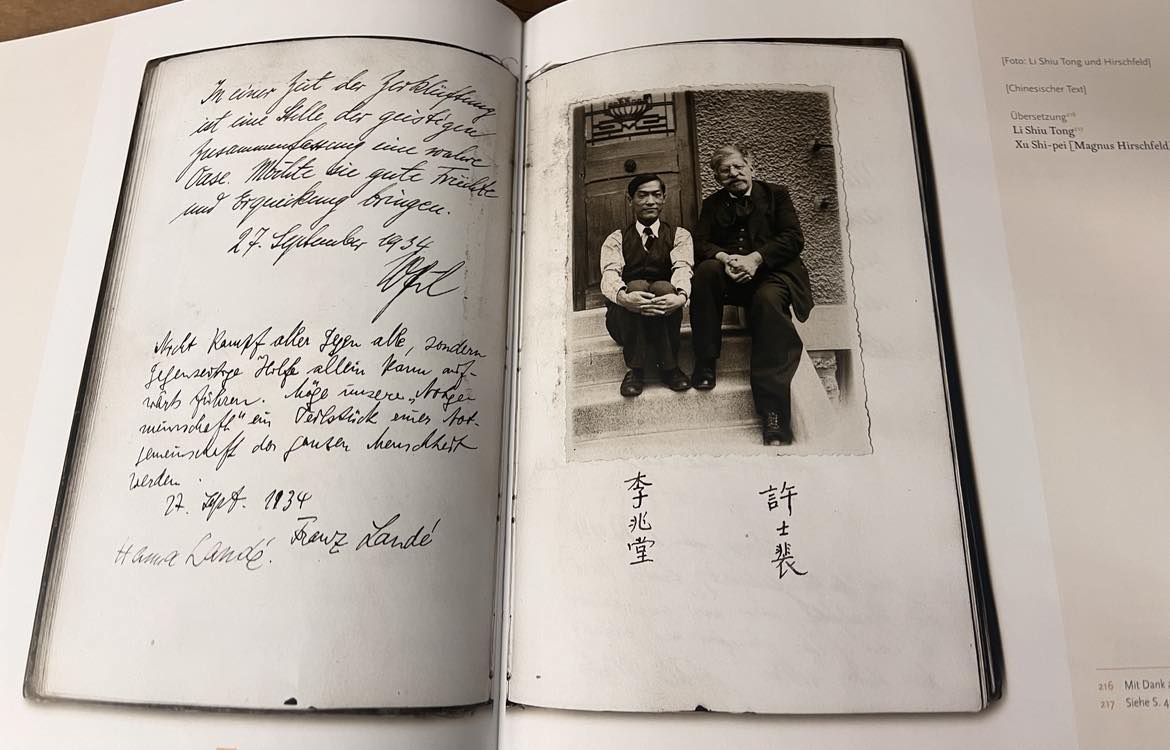 In einer Zeit der Zerklüftung
ist eine Stelle der geistigen
Zusammenfassung eine wahre
Oase. Möchte sie gute Früchte
und Erquickung bringen.
27. September 1934
Nicht Kampf aller gegen alle, sondern
gegenseitige Hilfe allein kann auf-
wärts führen. Möge unsere „Notge
meinschaft" ein Teilstück einer Not-
gemeinschaft der ganzen Menschheit
werden.
27. Sept. 1934
Franz Landé
Hanna Landé.
李兆堂
許士裴
[Foto: Li Shiu Tong und Hirschfeld]
[Chinesischer Text]
Übersetzung216
Li Shiu Tong217
Xu Shi-pei [Magnus Hirschfeld]
216 Mit Dank a
217 Siehe S. 4